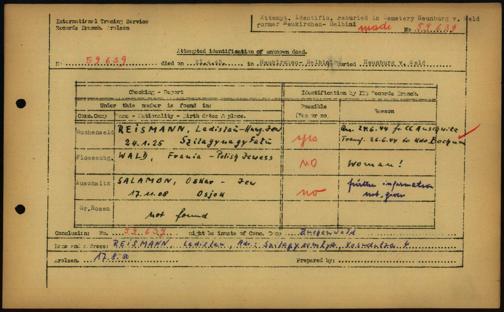 International Tracing Service
Records Branch Arolsen
Attempt. Identific. reburied in Cemetery Neunburg v. Wald
former Neukirchen- Balbini
made No 59639
Attempted identification of unknown dead.
No 59639 died on 21.4.45. in Neukirchen-Balbini Neunburg v. Wald
Checking - Report
Identification by ITS Records Branch
Under this number is found in:
Possible
Reason
Conc.Camp Name - Nationality - Birth date & place.
Yes or no.
Buchenwald REISMANN, Ladislau-Hung. Jew yes Arr. 24.6.44 fr CC Auschwitz
24.1.25 Transf. 26.6.44 to Kdo Bochum
Flossenbg. WALD, Frania - Polish Jewess NO Woman!
Auschwitz SALAMON, Oskar - Jew no further information
17.11.08 not given
Gr.Rosen not found
Conclusion No. 59.639 might be inmate of Conc. Camp Buchenwald
Name and Adress: REISMANN, Ladislau,
Arolsen Prepared by: